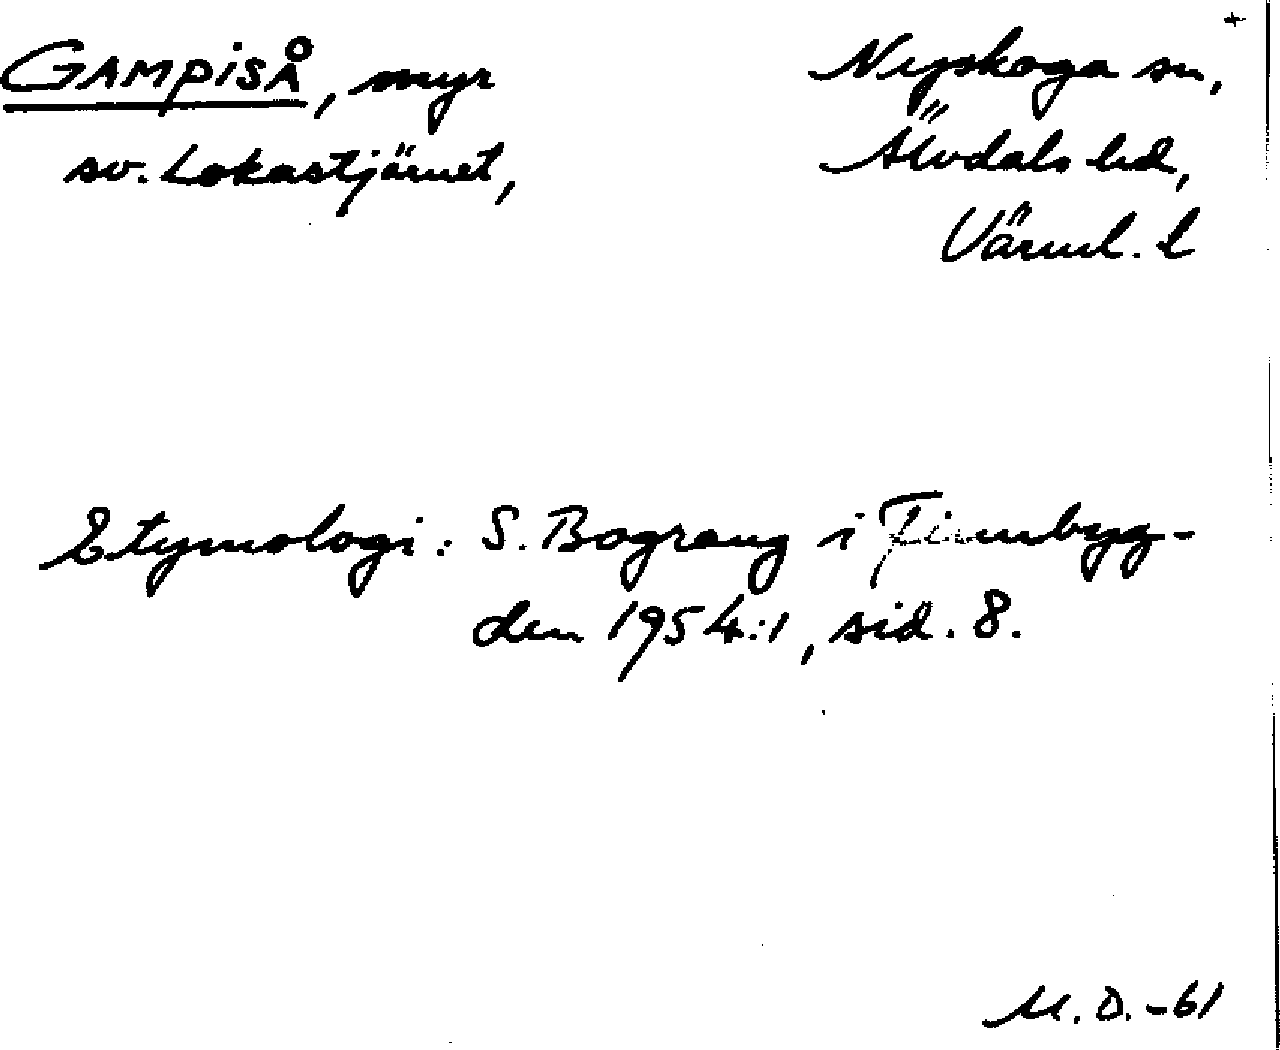 GAMPISÅ, myr
sv. Lokastjärnet,
Nyskoga sn,
Älvdals hd,
Värml. l
Etymologi: S. Bograng i Finnbyg-
den 1954:1, sid. 8.
M.D. -61